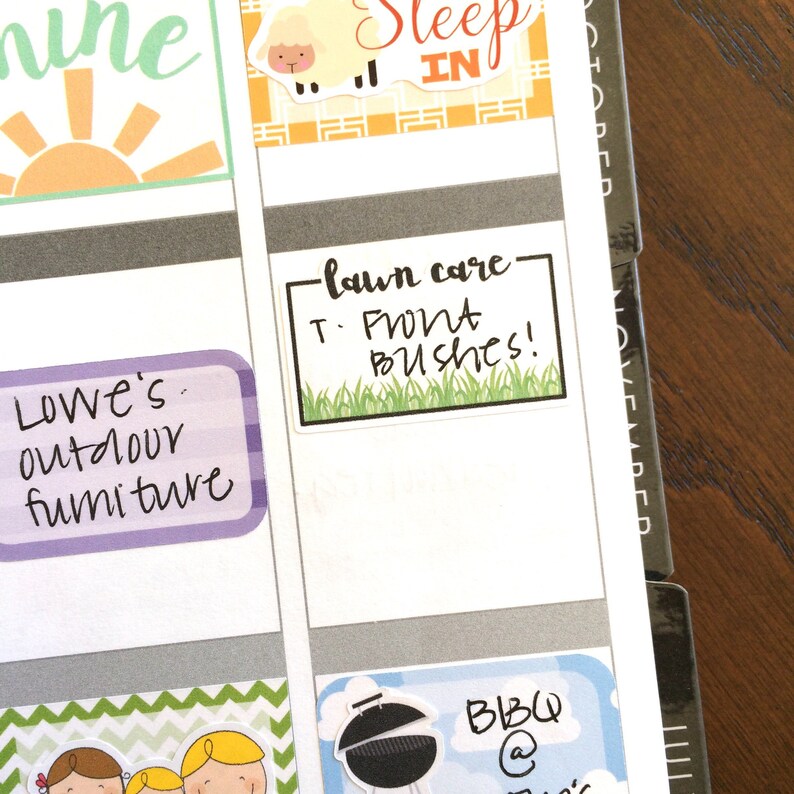 mine
Sleep
IN
OCTOBER
lawn care
T. Front
Bushes!
NOVEMBER
Lowe's.
outdoor
furniture
BBQ
@